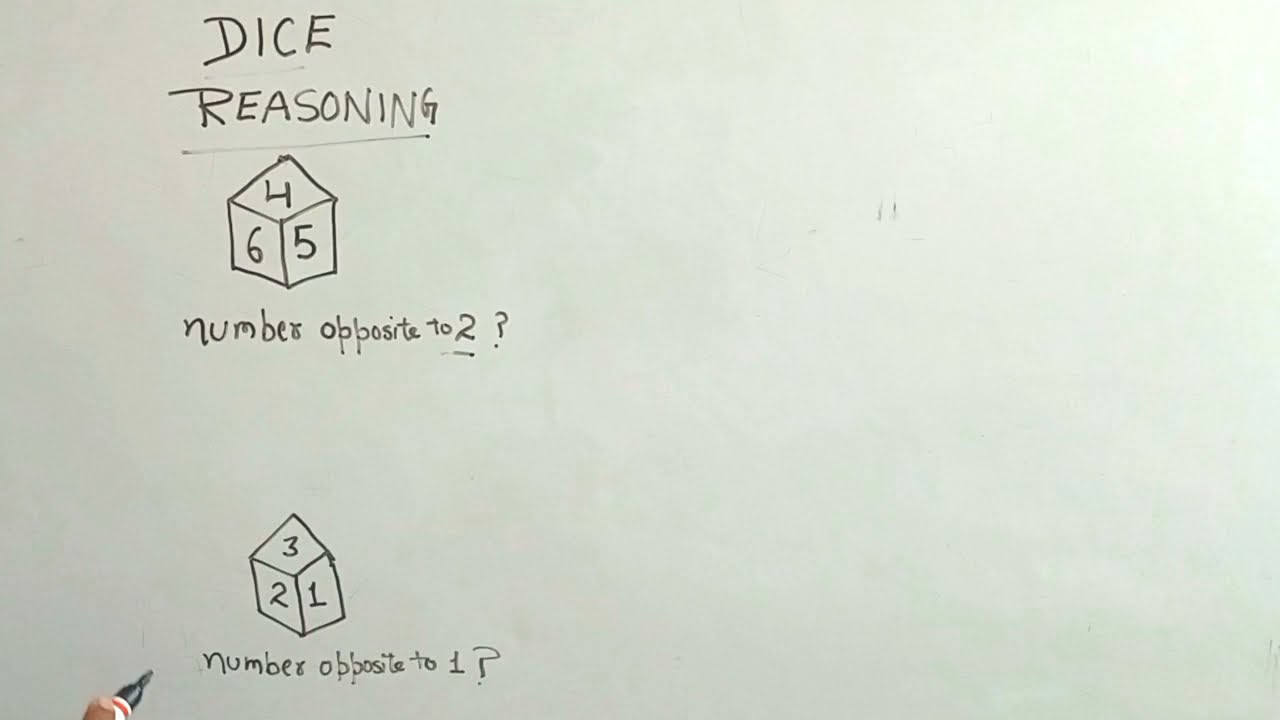 DICE
REASONING
4
6 5
number opposite to 2 ?
3
2 1
number opposite to 1 ?